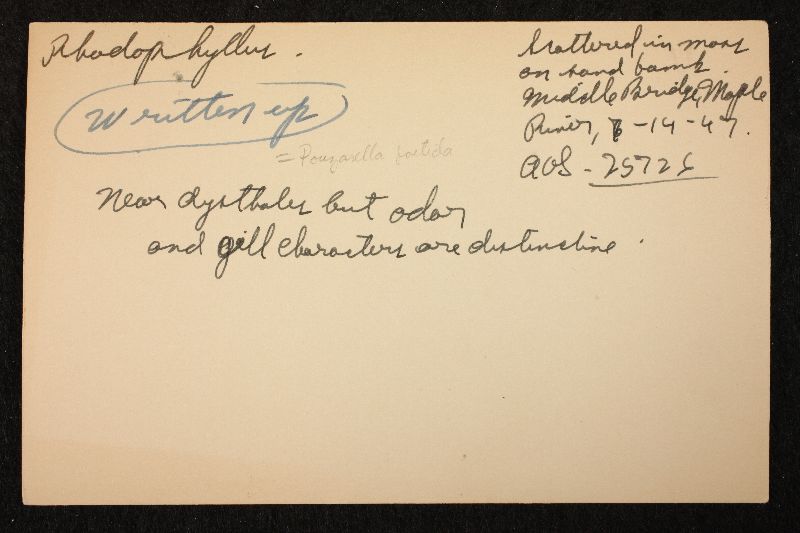 Rhodophyllus.
Written up
= Pouzarella foetida
Scattered in moss
on sand bank
Middle Bridge, Maple
River, -14-47.
AHS - 25726
Near dysthales but odor
and gill characters are distinctive.